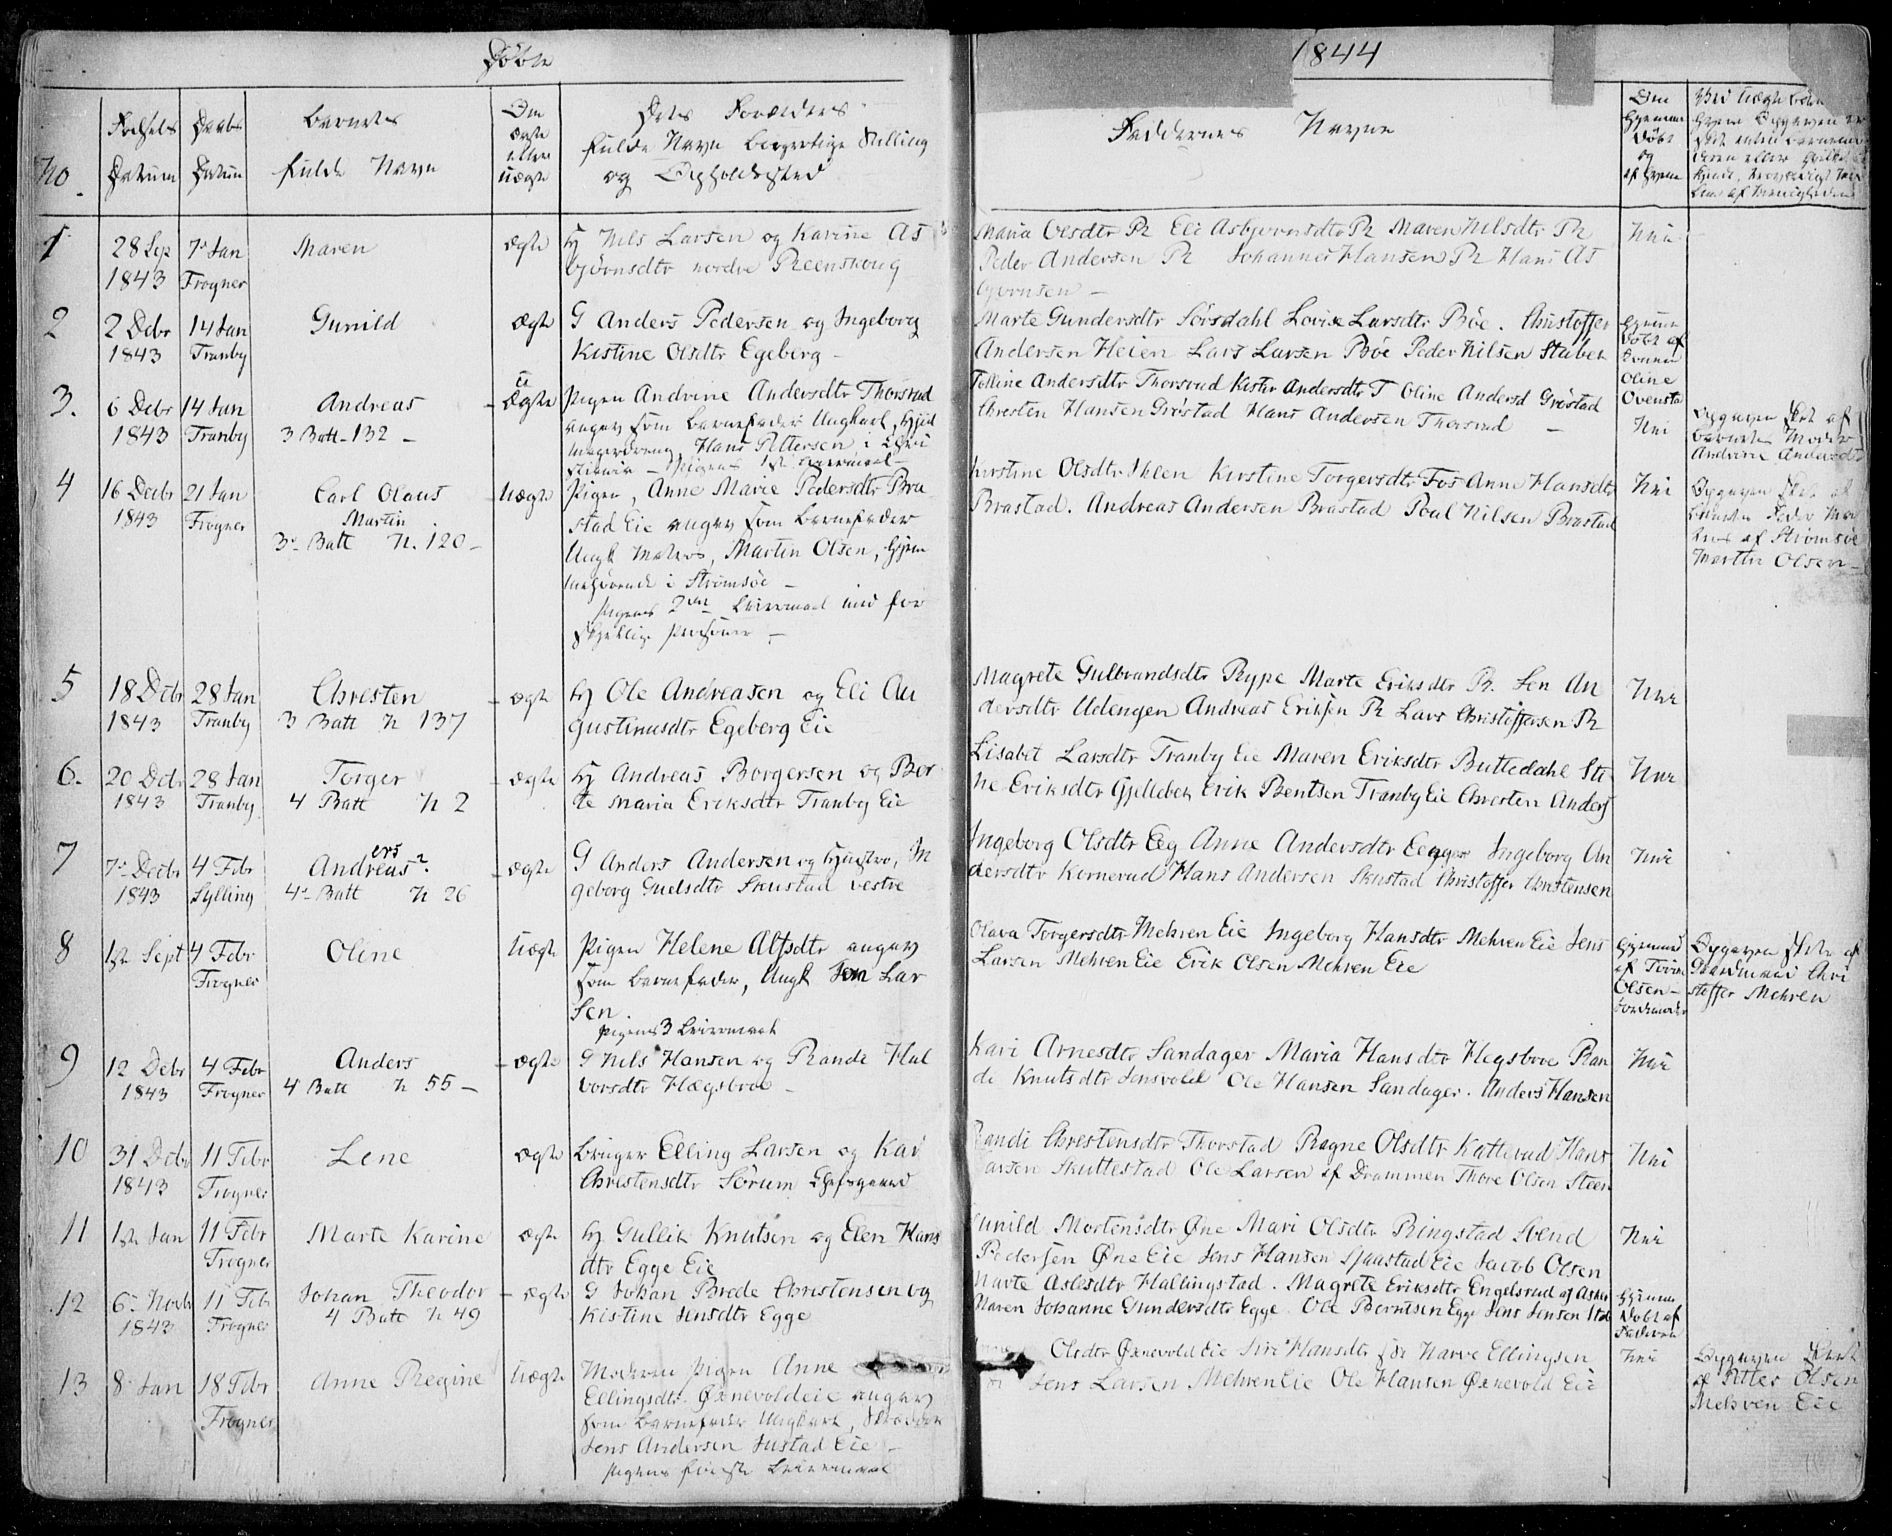 Døbte
1844
No.
Fødsels Datum
Daabs Datum
Barnets fulde Navn
Om ægte eller uægte
Dets Forældres fulde Navn borgerlige Stilling og Opholdssted
Faddernes Navne
Om hjemme døbt og af hvem
1
28 Sep 1843
7 Jan Frogner
Maren
ægte
Hj Nils Larsen og Karine As
bjørnsdtr nordre Reenskoug
Maria Olsdtr R Eli Asbjørnsdtr R Maren Nilsdtr R
Peder Andersen R Johannes Hansen R Hans As
bjørnsen –
Nei
2
2 Debr 1843
14 Jan Tranby
Gunild
ægte
G Anders Pedersen og Ingeborg
Kistine Olsdtr Egeberg –
Marte Gundersdtr Sørsdahl Lovise Larsdtr Bøe. Christoffer
Andersen Heien Lars Larsen Bøe Peder Nilsen Stabek
hjemme døbt af
Oline Ovensta
3.
6 Debr 1843
14 Jan Tranby
Andreas
3 Batt – 132 –
u
– Ægte
Pigen Andrine Andersdtr Thorsrud
angav som Barnefader Ungkarl,
Hans Pettersen i Chri
stiania – Pigens 1ste Leiermaal –
Andersdtr Thorsrud Andersdtr T Oline Andersd Grøstad
Chresten Hansen Grøstad Hans Andersen Thorsrud –
Nei
Opgaven skeet af
Barnets Moder
Andrine Andersdt
4
16 Decbr 1843
21 Jan Frogner
Carl Olaus
Martin
3 Batt N. 120 –
– Uægte
Pigen, Anne Marie Pedersdtr Bra
stad Eie angav som Barnefader
Ungk Matros, Martin Olsen, hjem
mehørende i Strømsøe –
Pigens 2det Leiermaal med for
skjellige Personer –
Kirstine Olsdtr Ihlen Kirstine Torgersdtr Fos Anne Hansdtr
Brastad. Andreas Andersen Brastad Poul Nilsen Brastad
Nei
Opgaven skeet af
Barnets Fader Ma
tros af Strømsøe
Martin Olsen –
5
18 Debr 1843
28 Jan Tranby
Chresten
3 Batt N 137
– ægte
Hj Ole Andreasen og Eli Au
gustinusdtr Egeberg Eie
Magrete Gulbrandsdtr Rype Marte Eriksdtr R. An
dersdtr Udengen Andreas Eriksen R Lars Christoffersen R
Nei
6.
20 Debr 1843
28 Jan Tranby
Torger
4 Batt N 2
– ægte
Hj Andreas Borgersen og Ber
te Maria Eriksdtr Tranby Eie
Lisabet Larsdtr Tranby Eie Maren Eriksdtr Buttedahl Sti
ne Eriksdtr Gjellebek Erik Bentsen Tranby Eie Chresten Anders
Nei
7
7 Decbr 1843
4 Febr Sylling
ers
Andreas
4 Batt N 26
– ægte
G Anders Andersen og Hustro, In
geborg Gulsdtr Skustad vestre
Ingeborg Olsdtr Eeg Anne Andersdtr Ingeborg An
dersdtr Kornerud Hans Andersen Skustad Christoffer Christensen
Nei
8
1ste Sept
4 Febr Frogner
Oline
Uægte
Pigen Helene Alfsdtr angav
som Barnefader, Ungk Lar
sen.
Pigens 3 Leiermaal
Olava Torgersdtr Mehren Eie Ingeborg Hansdtr Mehren Eie Jens
Larsen Mehren Eie Erik Olsen Mehren Eie
hjemme
af
Olsen –
Opgaven skeet af
Gaardmand Chri
stoffer Mehren
9
12 Debr 1843
4 Febr Frogner
Anders
4 Batt N 55 –
– ægte
G Nils Hansen og Rande Hal
vorsdtr Hægsbroe –
Kari Arnesdtr Sandager Maria Hansdtr Hegsbroe Ran
di Knutsdtr Jensvold Ole Hansen Sandager. Anders Hansen
Nei
10
31 Debr 1843
11 Febr Frogner
Lene
ægte
Bruger Elling Larsen og Kari
Chrestensdtr Sørum
Randi Chrestensdtr Thorstad Ragne Olsdtr Katterud Hans
Larsen Skuttestad Ole Larsen af Drammen Thore Olsen Steen
Nei
11
1ste Jan
11 Febr Frogner
Marte Karine
ægte
Hj Gullik Knutsen og Elen Hans
dtr Egge Eie
Gunild Mortensdtr Øne Mari Olsdtr Ringstad Svend
Pedersen Øne Eie Jens Hansen Sjaastad Eie Jacob Olsen
Nei
12
6 Novb 1843
11 Feb Frogner
Johan Theodor
4 Batt N 49
– ægte
G Johan Brede Christensen og
Kistine Jensdtr Egge
Marte Aslesdtr Hallingstad. Magrete Eriksdtr Engelsrud af Asker
Maren Johanne Gundersdtr Egge Ole Berntsen Egge Jens Jensen
hjemme døbt af Faderen
13
8 Jan
18 Febr Frogner
Anne Regine
Uægte
Moderen Pigen Anne
Ellingsdtr Øxnevold Eie angav
som Barnefader Ungkarl, Skrædder
Jens Andersen Justad Eie –
Pigens første Leiermaal
Olsdtr Øxnevold Eie Siri Hansdtr Ellingsen
Jens Larsen Mehren Eie Ole Hansen Øxnevold Eie
Nei
Opgaven skeet
af Petter Olsen
Mehren Eie